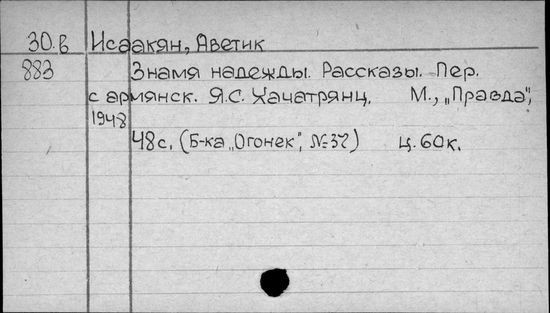 30.в Исаакян, Аветик
883 Знамя надежды. Рассказы. Пер.
с армянск. Я.С. Хачатрянц. М., „Правда",
1948
48с. (Б-ка „Огонек", №37) ц. 60к.